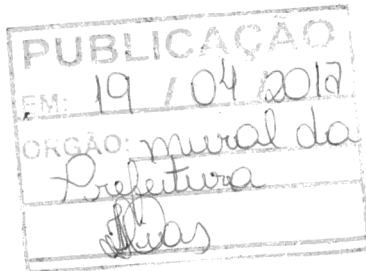 PUBLICAÇÃO
EM: 19 / 04 / 2017
ORGÃO: mural da
Prefeitura